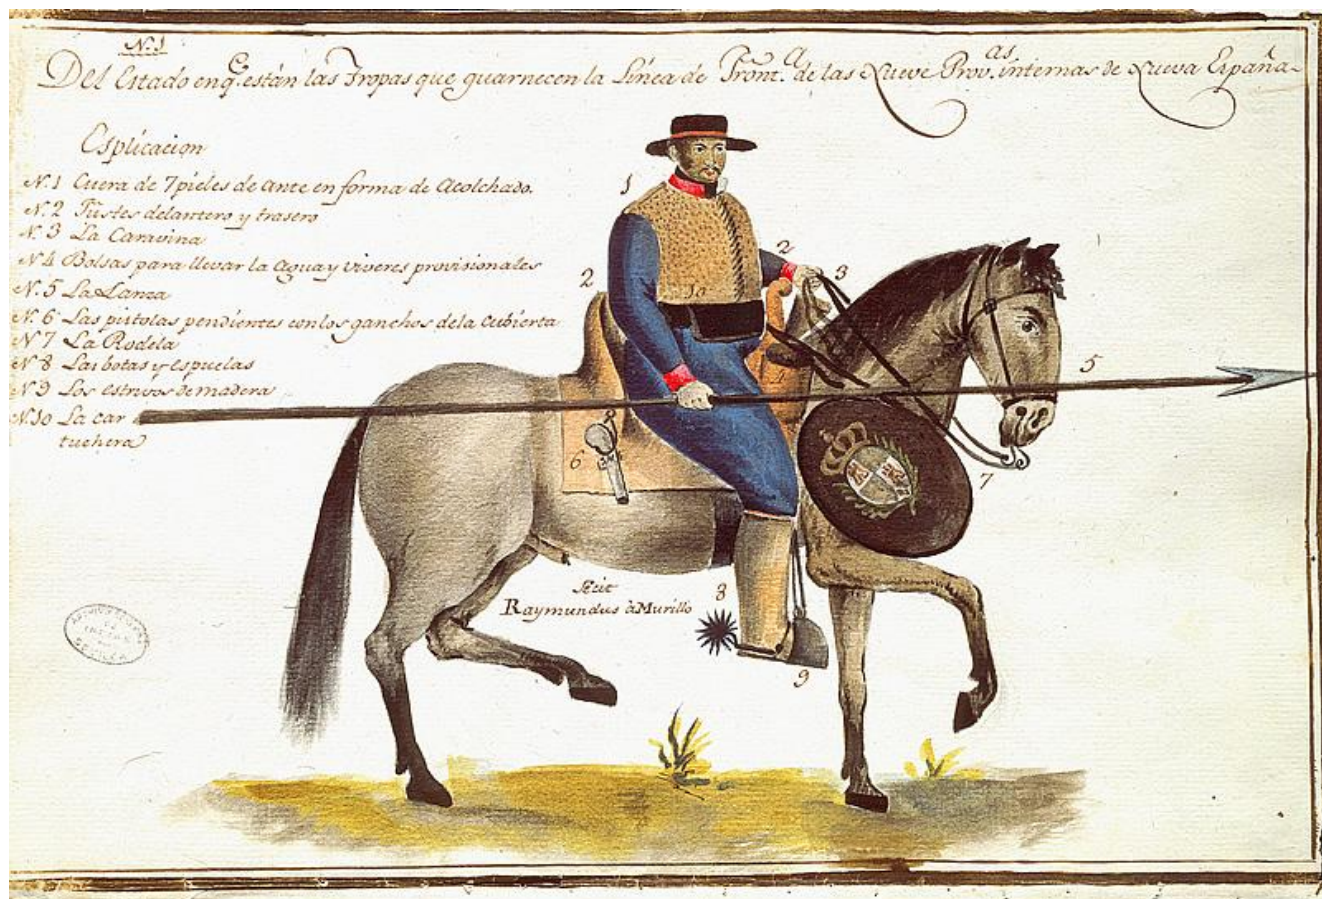 N.1
Del Estado en q.e están las Tropas que guarnecen la Línea de Front.a de las Nueve Prov.as internas de Nueva España
Esplicacion
N.1 Cuera de 7 pieles de ante en forma de Acolchado.
N.2 Fustes delantero y trasero
N.3 La Caravina
N.4 Bolsas para llevar la Agua y viveres provisionales
N.5 La Lanza
N.6 Las pistolas pendientes con los ganchos de la Cubierta
N.7 La Rodela
N.8 Las botas y espuelas
N.9 Los estrivos de madera
N.10 La car
tuchera
1
2
2
3
10
5
6
8
7
Fecit
Raymundus à Murillo
8
9
SEVILLA